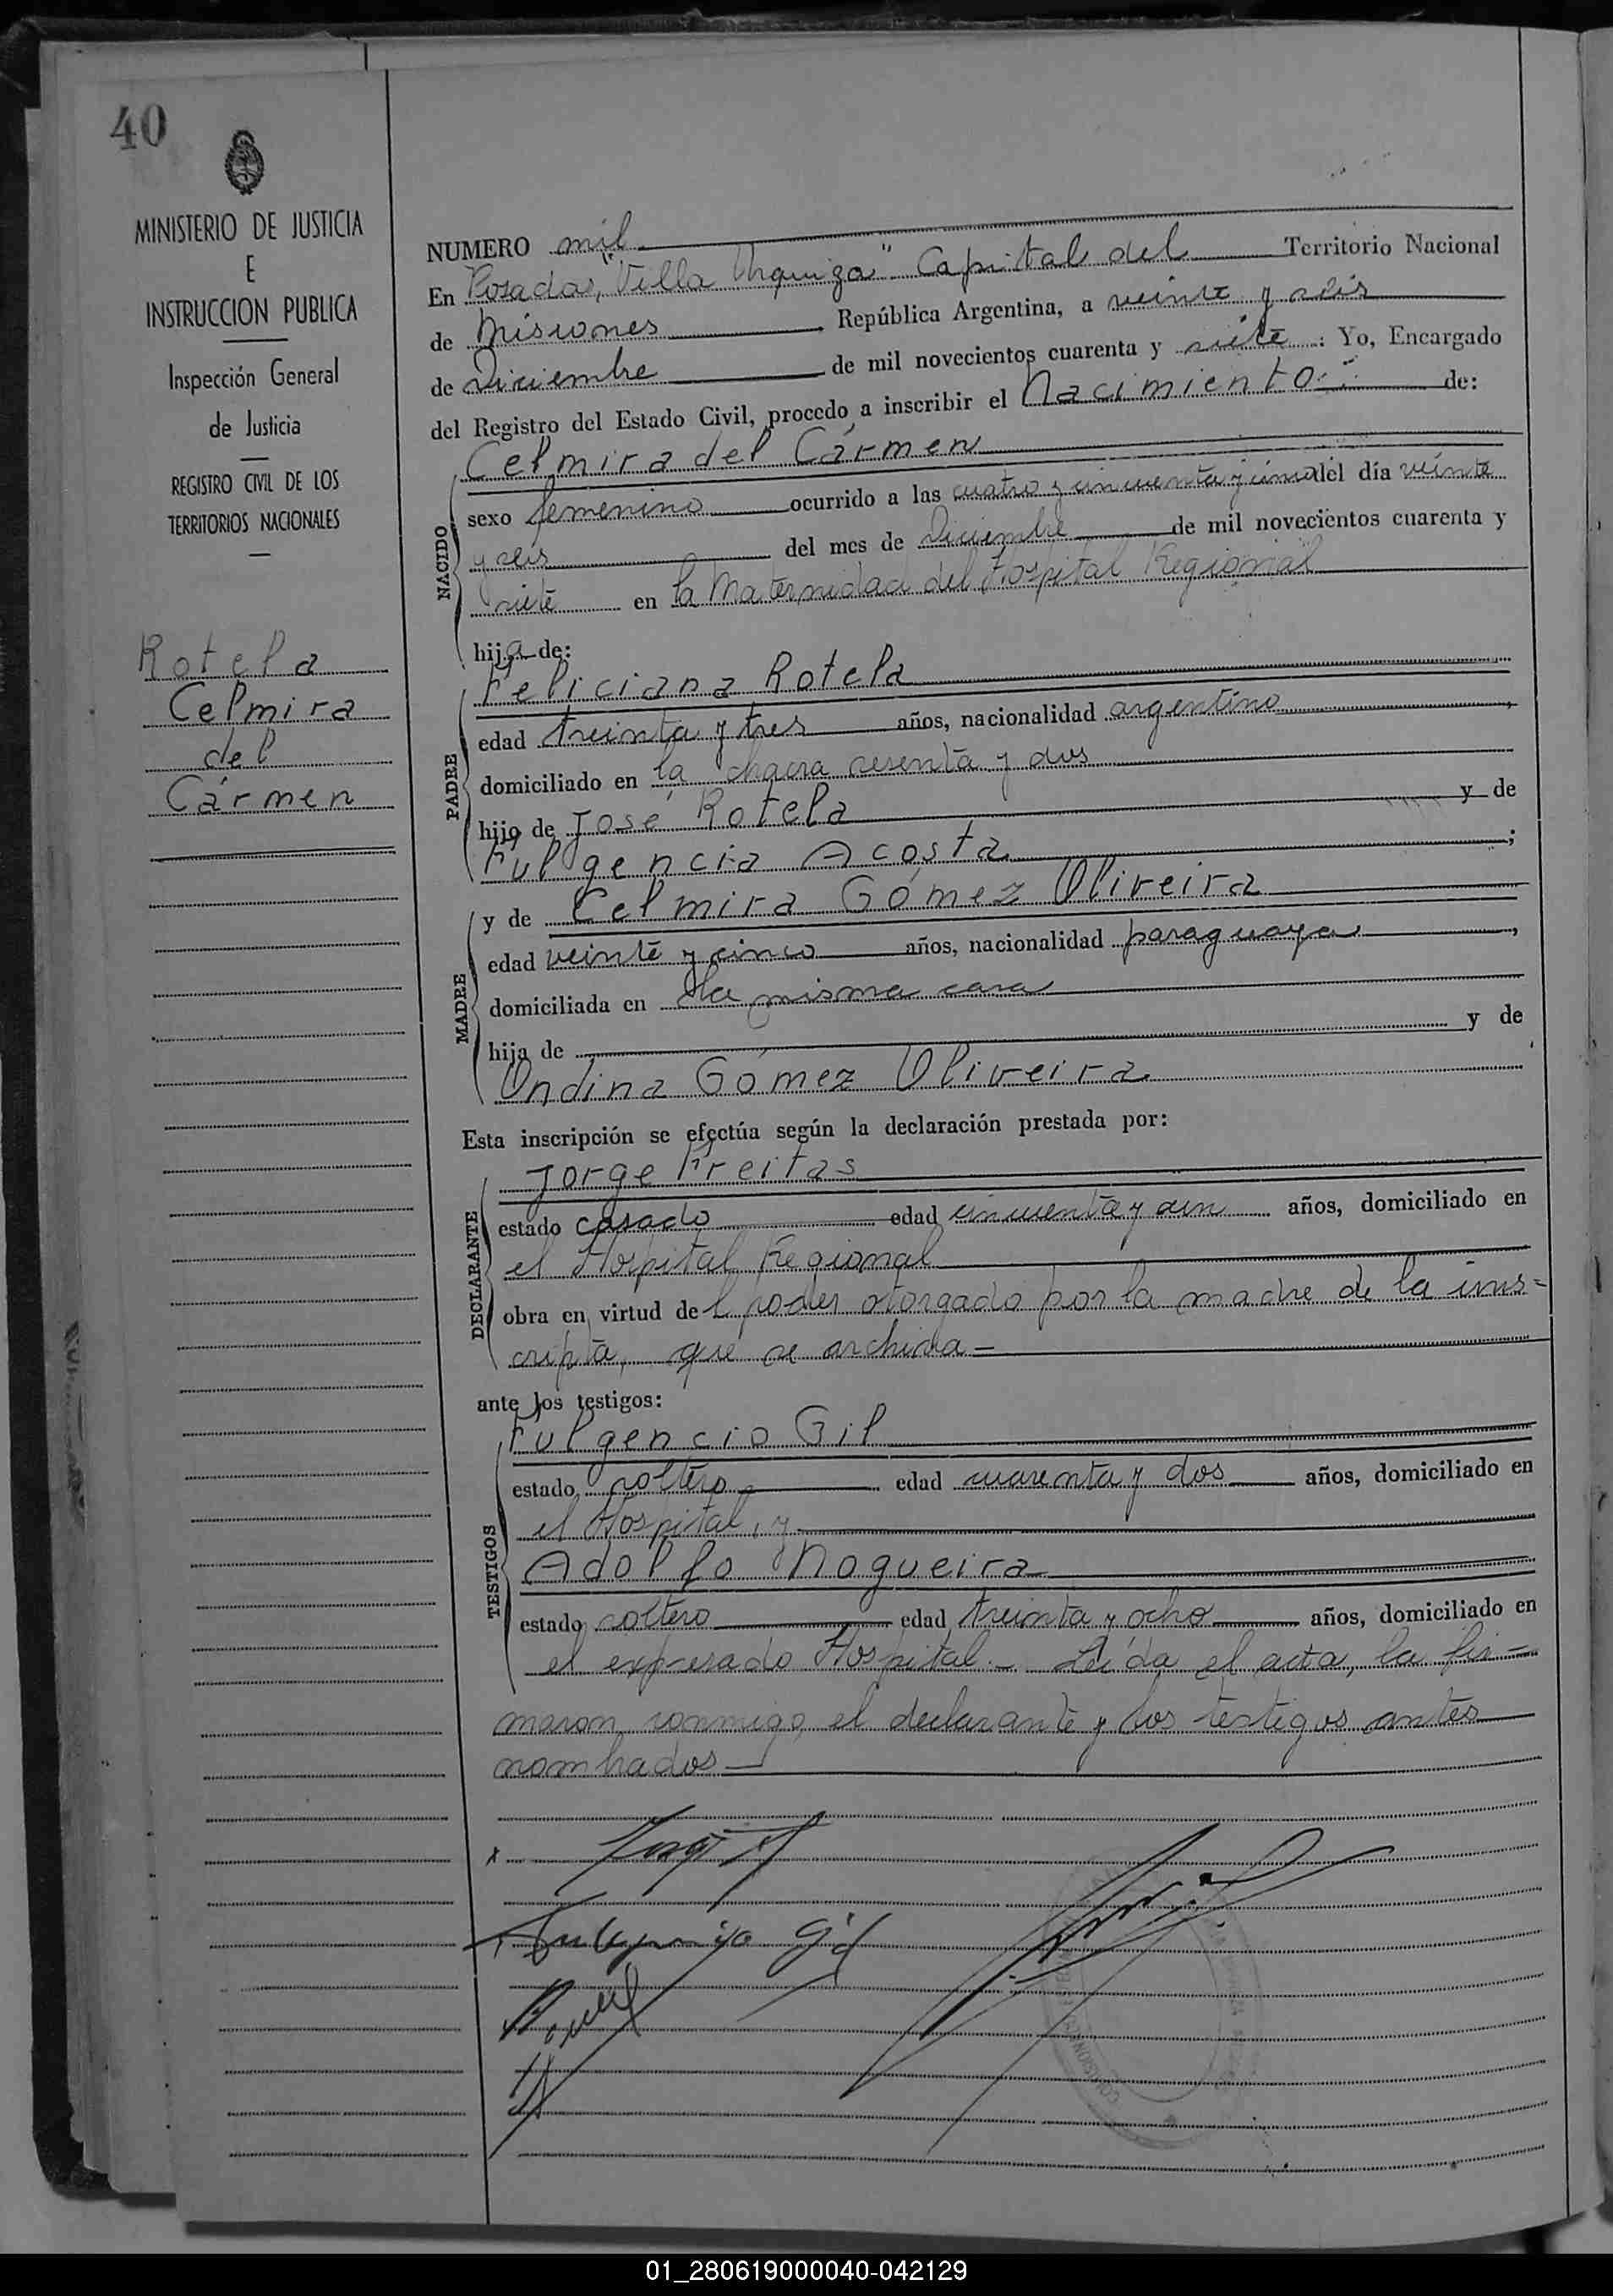 40
MINISTERIO DE JUSTICIA
E
INSTRUCCION PUBLICA
Inspección General
de Justicia
REGISTRO CIVIL DE LOS
TERRITORIOS NACIONALES
Rotela
Celmira
del
Cármen
NUMERO mil
En Posadas, "Villa Urquiza" Capital del Territorio Nacional
de Misiones República Argentina, a veinte y seis
de Diciembre de mil novecientos cuarenta y siete : Yo, Encargado
del Registro del Estado Civil, procedo a inscribir el Nacimiento de:
NACIDO
Celmira del Cármen
sexo femenino ocurrido a las cuatro y cincuenta y cinco del día veinte
y seis del mes de Diciembre de mil novecientos cuarenta y
siete en la Maternidad del Hospital Regional
hija de:
PADRE
Feliciana Rotela
edad treinta y tres años, nacionalidad argentino,
domiciliado en la chacra sesenta y dos
hijo de José Rotela y de
Fulgencia Acosta;
MADRE
y de Celmira Gómez Oliveira
edad veinte y cinco años, nacionalidad paraguaya,
domiciliada en la misma casa
hija de y de
Ondina Gómez Oliveira
Esta inscripción se efectúa según la declaración prestada por:
DECLARANTE
Jorge Freitas
estado casado edad cincuenta y un años, domiciliado en
el Hospital Regional
obra en virtud del poder otorgado por la madre de la ins=
cripta, que se archiva-
ante los testigos:
TESTIGOS
Fulgencio Gil
estado soltero edad cuarenta y dos años, domiciliado en
el Hospital, y
Adolfo Nogueira
estado soltero edad treinta y ocho años, domiciliado en
el expresado Hospital.- Leída el acta, la fir=
maron conmigo, el declarante y los testigos antes
nombrados
x
Gil
01_280619000040-042129